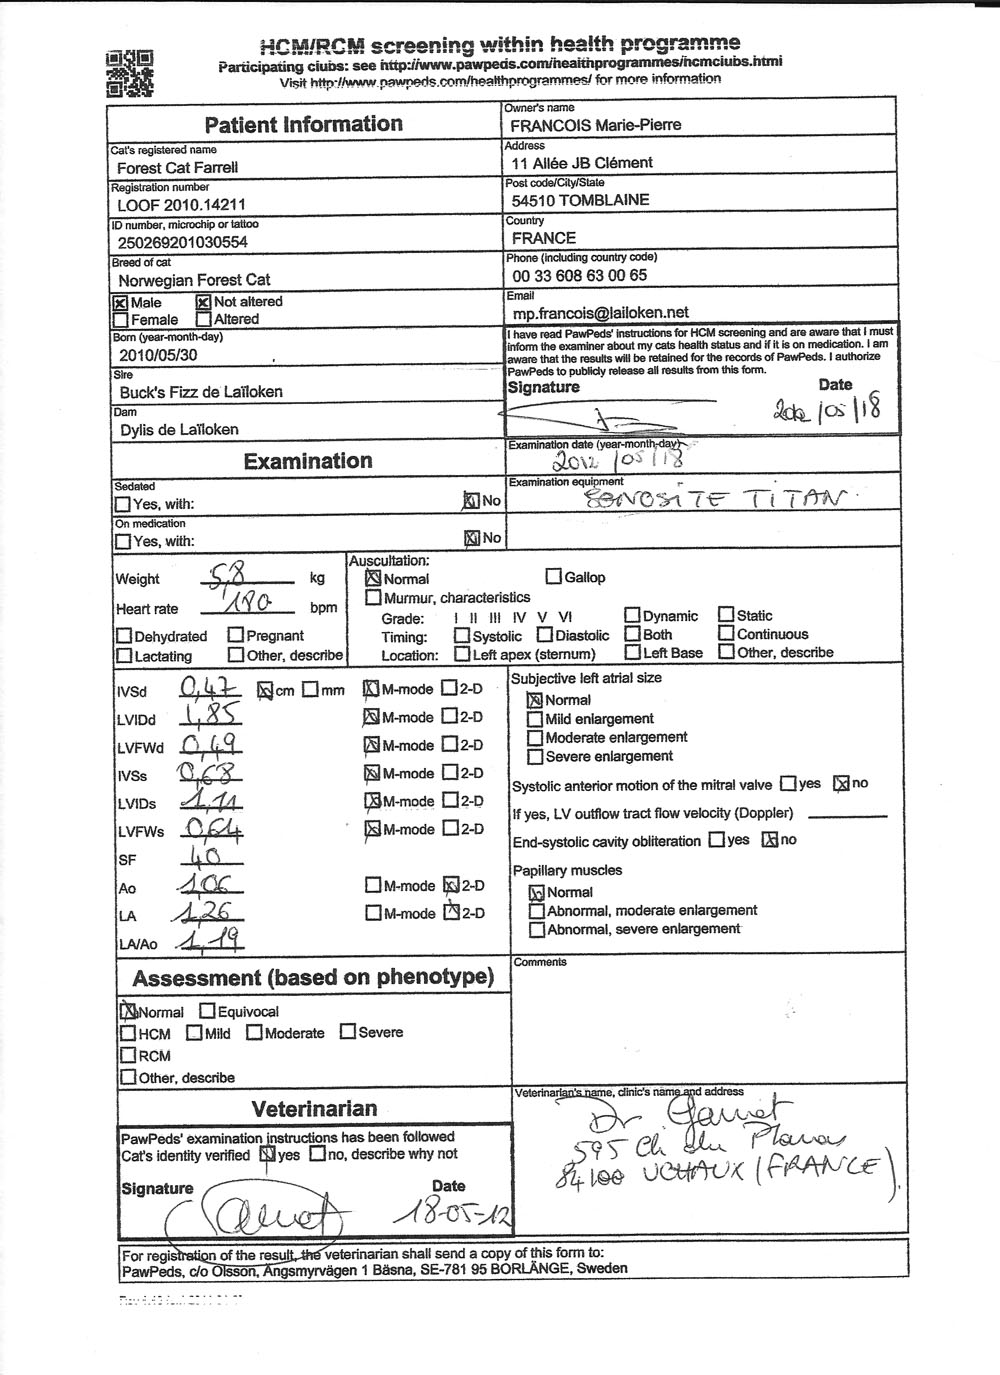 HCM/RCM screening within health programme
Participating clubs: see http://www.pawpeds.com/healthprogrammes/hcmclubs.html
Visit http://www.pawpeds.com/healthprogrammes/ for more information
Patient Information
Cat's registered name
Forest Cat Farrell
Registration number
LOOF 2010.14211
ID number, microchip or tattoo
250269201030554
Breed of cat
Norwegian Forest Cat
Male Not altered
Female Altered
Born (year-month-day)
2010/05/30
Sire
Buck's Fizz de Laïloken
Dam
Dylis de Laïloken
Owner's name
FRANCOIS Marie-Pierre
Address
11 Allée JB Clément
Post code/City/State
54510 TOMBLAINE
Country
FRANCE
Phone (including country code)
00 33 608 63 00 65
Email
mp.francois@lailoken.net
I have read PawPeds' instructions for HCM screening and are aware that I must
inform the examiner about my cats health status and if it is on medication. I am
aware that the results will be retained for the records of PawPeds. I authorize
PawPeds to publicly release all results from this form.
Signature Date
/05/18
Examination
Examination date (year-month-day)
2012/05/18
Sedated
Yes, with: No
Examination equipment
SONOSITE TITAN
On medication
Yes, with: No
Weight 5,8 kg
Heart rate 180 bpm
Dehydrated Pregnant
Lactating Other, describe
Auscultation:
Normal Gallop
Murmur, characteristics
Grade: I II III IV V VI Dynamic Static
Timing: Systolic Diastolic Both Continuous
Location: Left apex (sternum) Left Base Other, describe
IVSd 0,47 cm mm M-mode 2-D
LVIDd 1,85 M-mode 2-D
LVFWd 0,49 M-mode 2-D
IVSs 0,68 M-mode 2-D
LVIDs 1,11 M-mode 2-D
LVFWs 0,64 M-mode 2-D
SF 40
Ao 1,06 M-mode 2-D
LA 1,26 M-mode 2-D
LA/Ao 1,19
Subjective left atrial size
Normal
Mild enlargement
Moderate enlargement
Severe enlargement
Systolic anterior motion of the mitral valve yes no
If yes, LV outflow tract flow velocity (Doppler)
End-systolic cavity obliteration yes no
Papillary muscles
Normal
Abnormal, moderate enlargement
Abnormal, severe enlargement
Assessment (based on phenotype)
Normal Equivocal
HCM Mild Moderate Severe
RCM
Other, describe
Comments
Veterinarian
PawPeds' examination instructions has been followed
Cat's identity verified yes no, describe why not
Signature Date
18-05-12
Veterinarian's name, clinic's name and address
Dr Garnot
595 Ch du
84100 UCHAUX (FRANCE)
For registration of the result, the veterinarian shall send a copy of this form to:
PawPeds, c/o Olsson, Ängsmyrvägen 1 Bäsna, SE-781 95 BORLÄNGE, Sweden